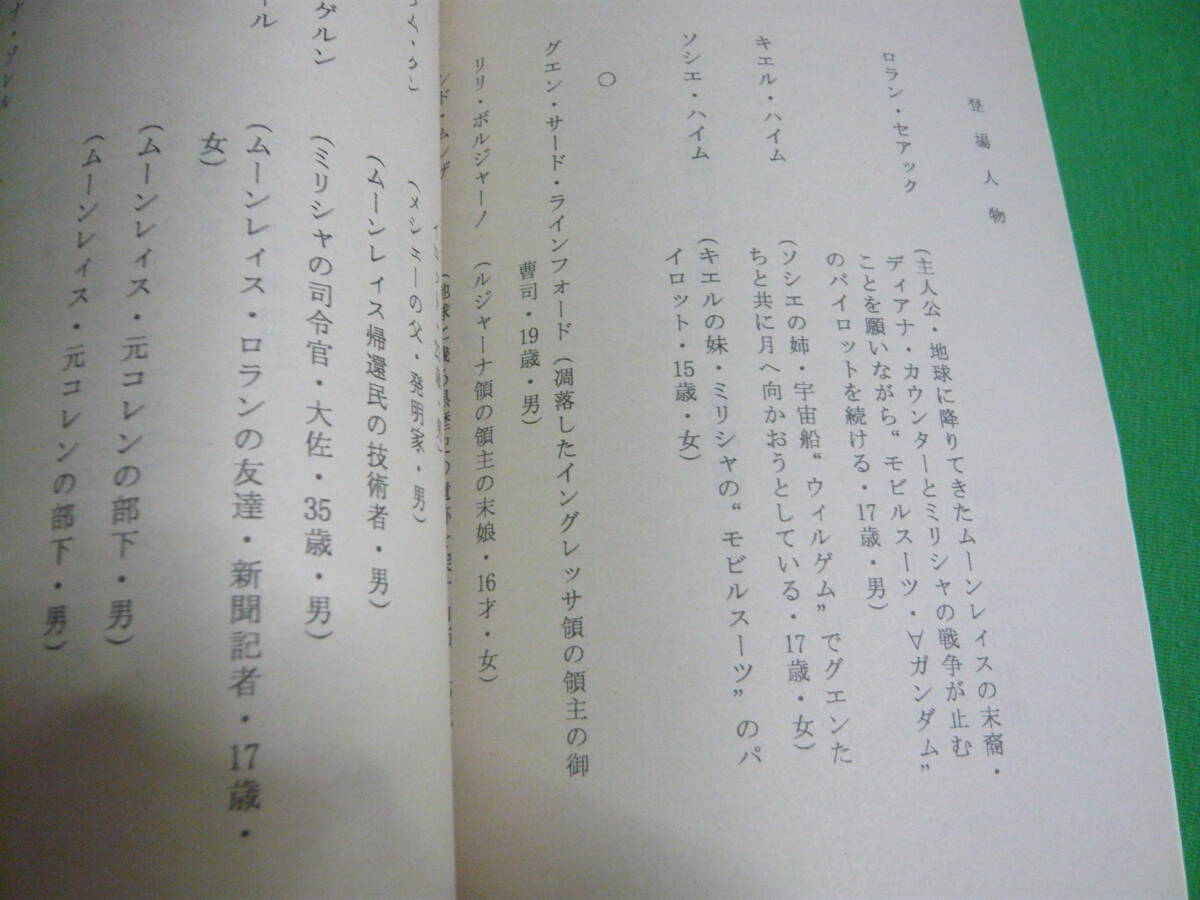 登場人物
ロラン・セアック
(主人公・地球に降りてきたムーンレィスの末裔・
ディアナ・カウンターとミリシャの戦争が止む
ことを願いながら“モビルスーツ・∀ガンダム”
のパイロットを続ける・17歳・男)
キエル・ハイム
(ソシエの姉・宇宙船“ウィルゲム”でグエンた
ちと共に月へ向かおうとしている・17歳・女)
ソシエ・ハイム
(キエルの妹・ミリシャの“モビルスーツ”のパ
イロット・15歳・女)
○
グエン・サード・ラインフォード(凋落したイングレッサ領の領主の御
曹司・19歳・男)
リリ・ボルジャーノ
(ルジャーナ領の領主の末娘・16才・女)
(メシェーの父・発明家・男)
(ムーンレィス帰還民の技術者・男)
(ミリシャの司令官・大佐・35歳・男)
(ムーンレィス・ロランの友達・新聞記者・17歳・
女)
(ムーンレィス・元コレンの部下・男)
(ムーンレィス・元コレンの部下・男)